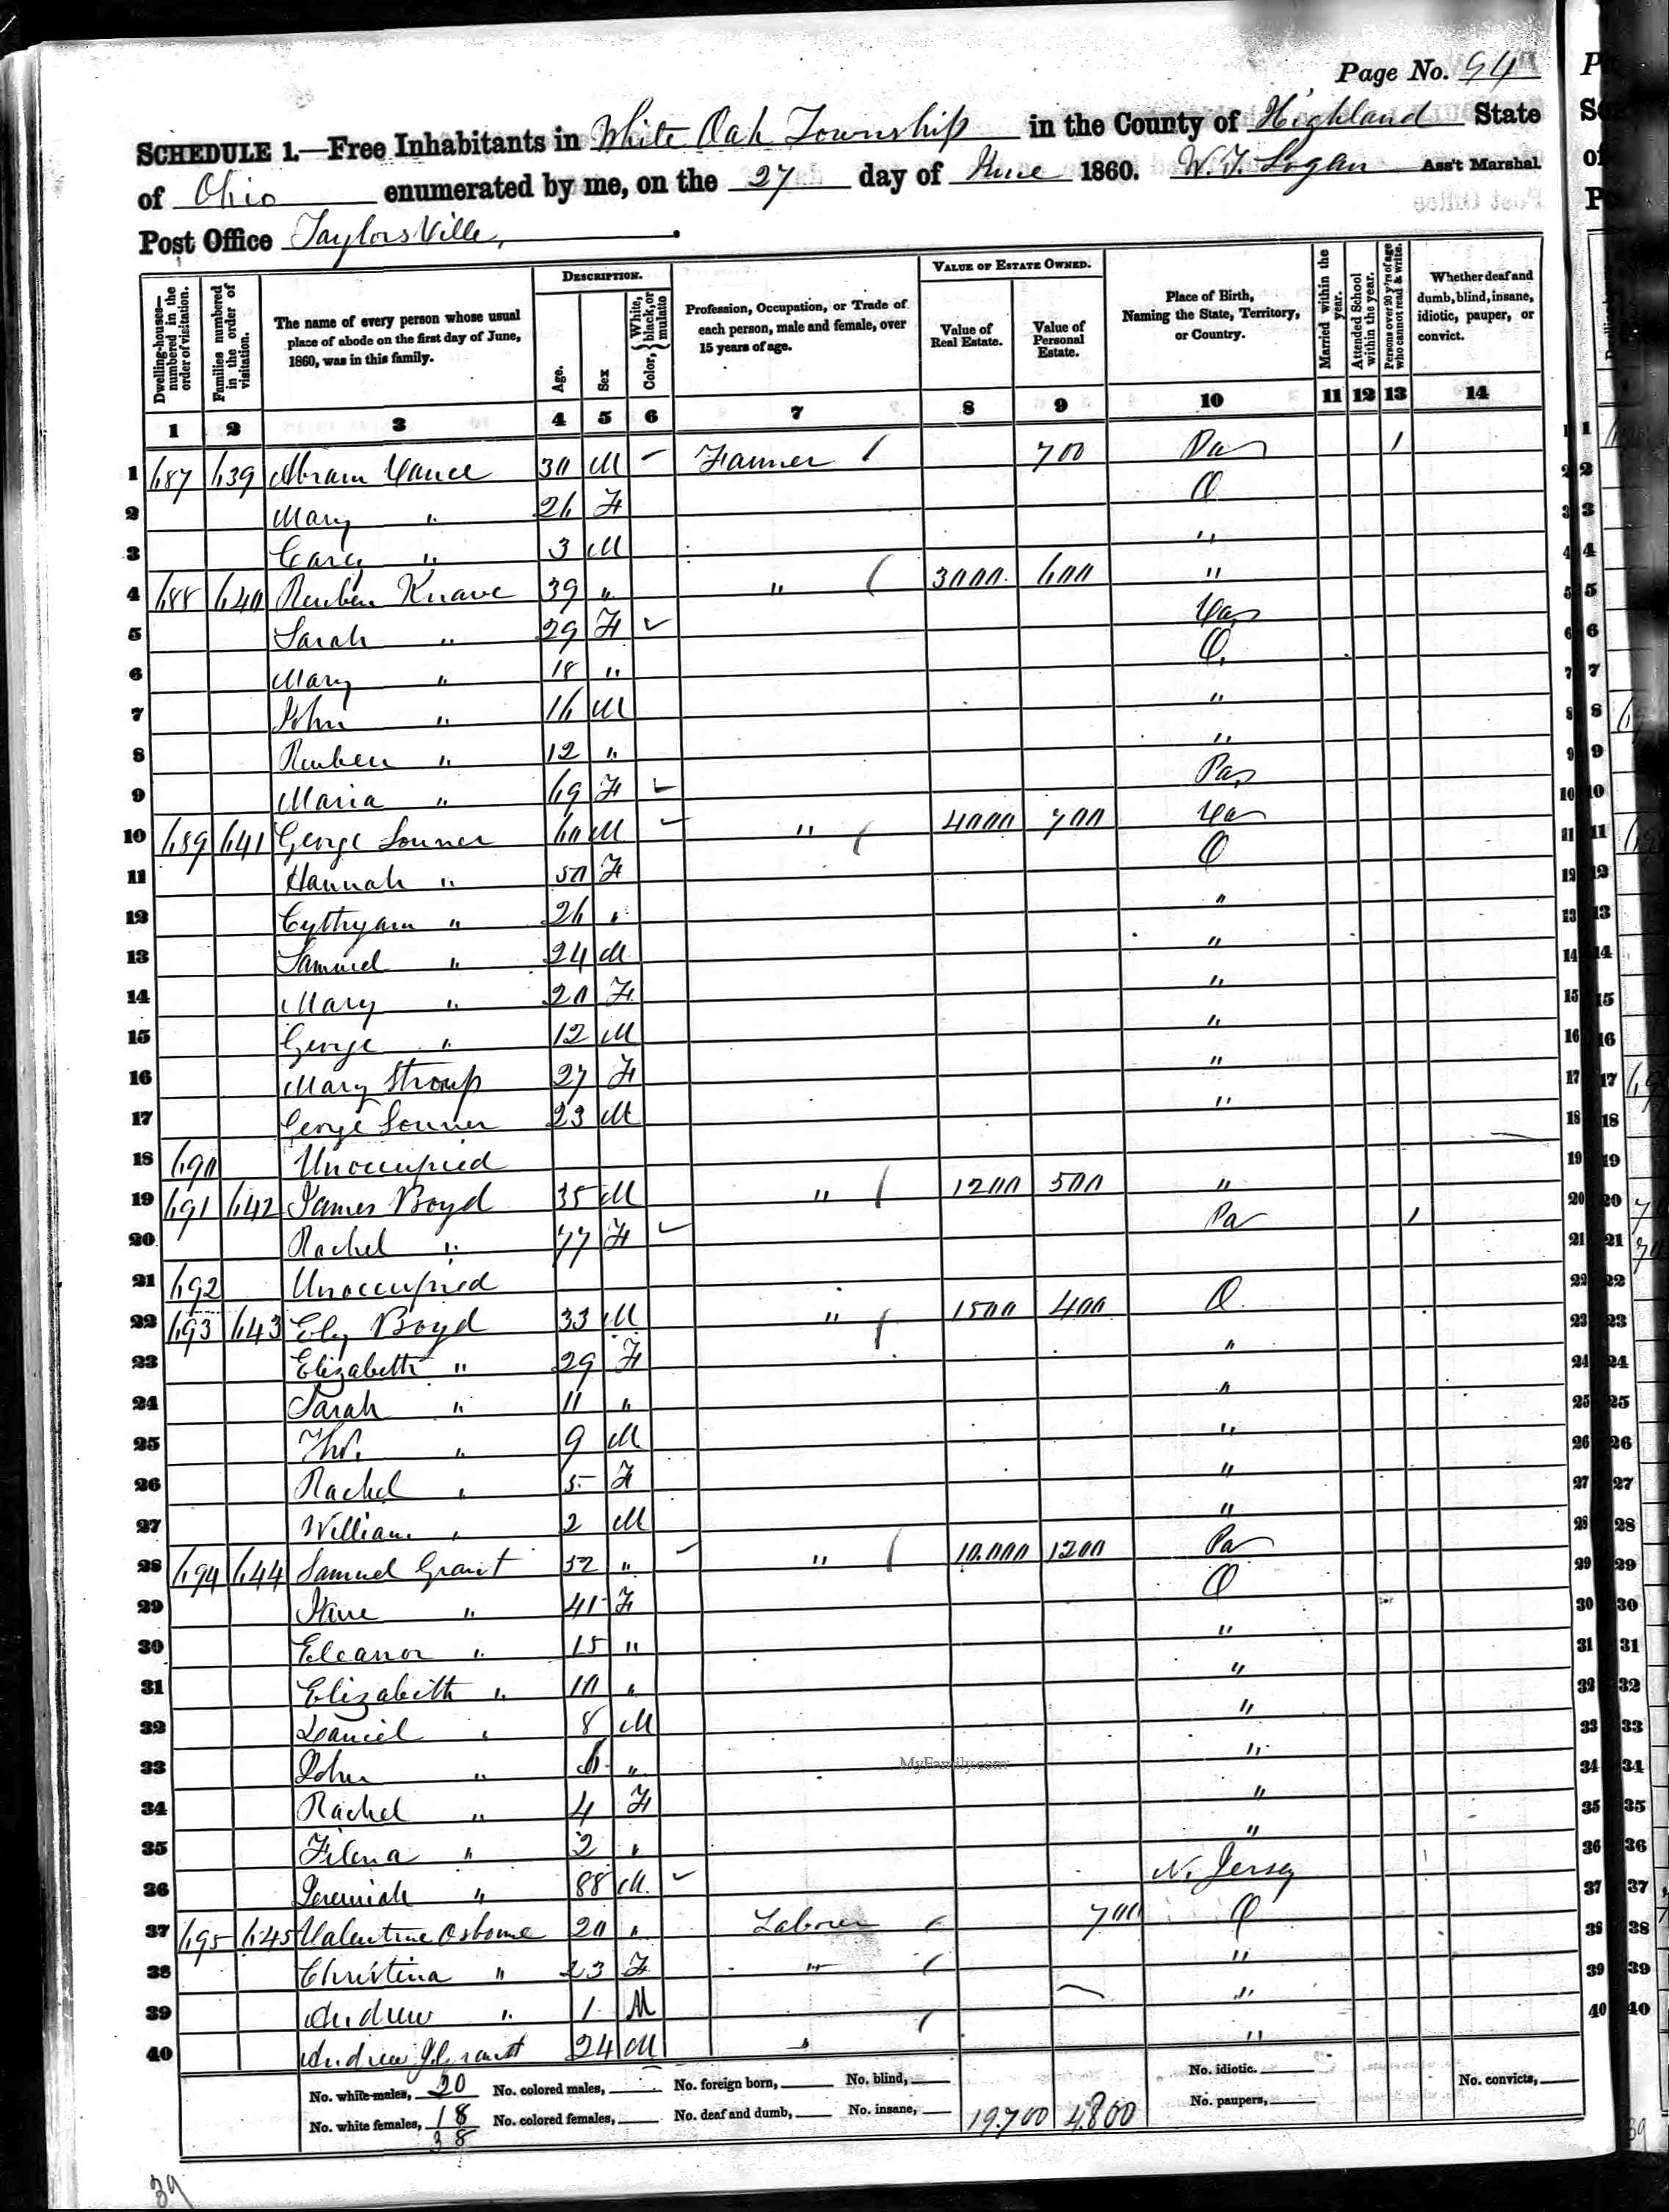 Page No. 94
SCHEDULE 1.—Free Inhabitants in White Oak Township in the County of Highland State
of Ohio enumerated by me, on the 27 day of June 1860. W. T. Logan Ass't Marshal.
Post Office Taylorsville,
Dwelling-houses—numbered in the order of visitation.
Families numbered in the order of visitation.
The name of every person whose usual place of abode on the first day of June, 1860, was in this family.
DESCRIPTION.
Age.
Sex
Color, White, black, or mulatto
Profession, Occupation, or Trade of each person, male and female, over 15 years of age.
VALUE OF ESTATE OWNED.
Value of Real Estate.
Value of Personal Estate.
Place of Birth, Naming the State, Territory, or Country.
Married within the year.
Attended School within the year.
Persons over 20 y'rs of age who cannot read & write.
Whether deaf and dumb, blind, insane, idiotic, pauper, or convict.
1 2 3 4 5 6 7 8 9 10 11 12 13 14
1 687 639 Abram Vance 30 M Farmer 700 Pa / 1
2 Mary " 26 F O 2
3 Carey " 3 M " 3
4 688 640 Reuben Knave 39 " " 3000 600 " 4
5 Sarah " 29 F Va 5
6 Mary " 18 " O. 6
7 John " 16 M " 7
8 Reuben " 12 " " 8
9 Maria " 69 F Pa 9
10 689 641 George Sonner 60 M " 4000 700 Va 10
11 Hannah " 50 F O 11
12 " 26 " " 12
13 Samuel " 24 M " 13
14 Mary " 20 F " 14
15 George " 12 M " 15
16 Mary Stroup 27 F " 16
17 George Sonner 23 M " 17
18 690 Unoccupied 18
19 691 642 James Boyd 35 M " 1200 500 " 19
20 Rachel " 77 F Pa / 20
21 692 Unoccupied 21
22 693 643 Ely Boyd 33 M " 1500 400 O 22
23 Elizabeth " 29 F " 23
24 Sarah " 11 " " 24
25 Tho. " 9 M " 25
26 Rachel " 5 F " 26
27 William " 2 M " 27
28 694 644 Samuel Grant 52 " " 10.000 1200 Pa 28
29 Jane " 41 F O 29
30 Eleanor " 15 " " 30
31 Elizabeth " 10 " " 31
32 Daniel " 8 M " 32
33 John " 6 " " 33
34 Rachel " 4 F " 34
35 Filena " 2 " " 35
36 Jeremiah " 88 M. N. Jersey 36
37 695 645 Valentine Osborne 20 " Laborer 700 O 37
38 Christina " 23 F " " 38
39 Andrew " 1 M " 39
40 Andrew J. Grant 24 M " " 40
No. white males, 20 No. colored males, No. foreign born, No. blind, No. idiotic.
No. white females, 18 No. colored females, No. deaf and dumb, No. insane, 19.700 4.800 No. paupers, No. convicts,
38
39
MyFamily.com